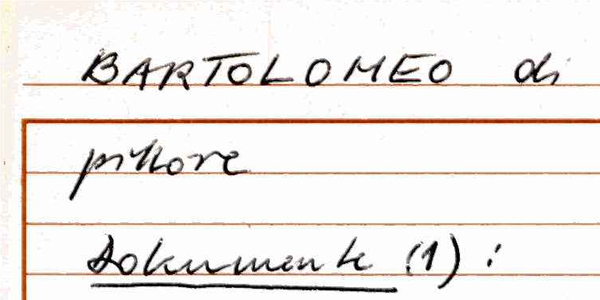 BARTOLOMEO di
pittore
Dokumente (1):